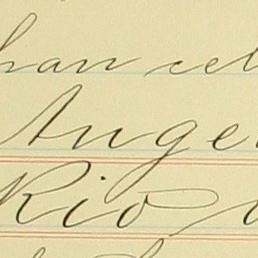 han cel
Ange
Rio